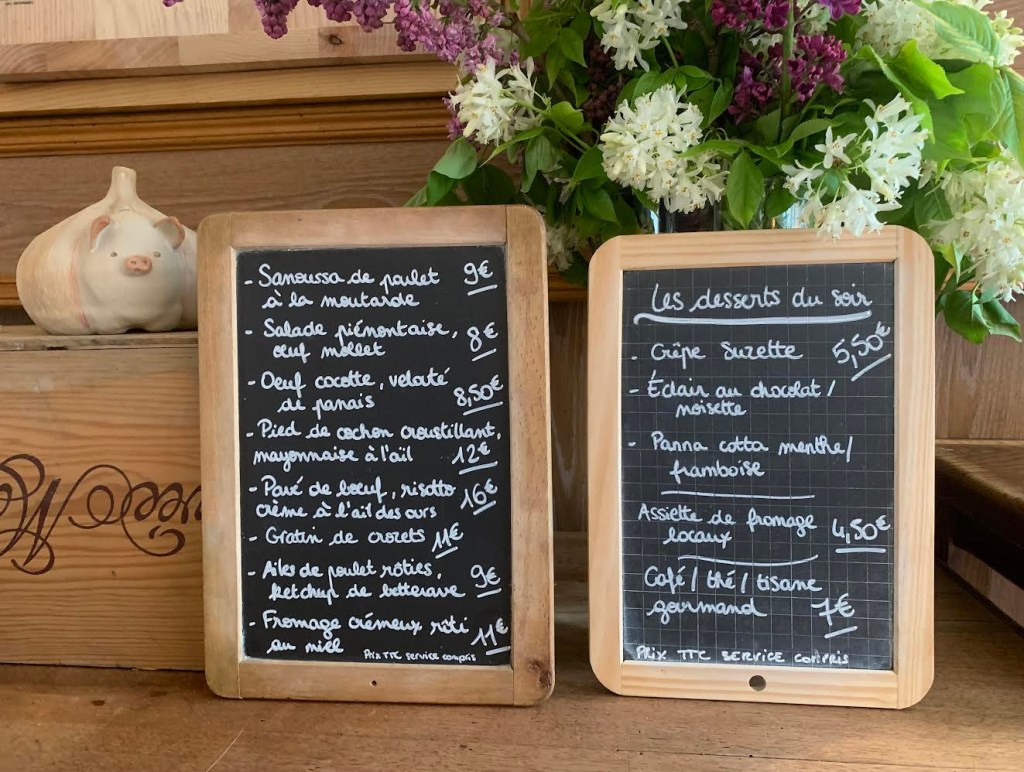 - Sanoussa de poulet 9€
à la moutarde
- Salade piémontaise, 8€
œuf mollet
- Oeuf cocotte, velouté 8,50€
de panais
- Pied de cochon croustillant,
mayonnaise à l'ail 12€
- Pavé de bœuf, risotto 16€
crème à l'ail des ours
- Gratin de crozets 11€
- Ailes de poulet rôties, 9€
ketchup de betterave
- Fromage crémeux rôti 11€
au miel
Prix TTC service compris
Les desserts du soir
- Crêpe Suzette 5,50€
- Éclair au chocolat /
noisette
- Panna cotta menthe /
framboise
Assiette de fromage 4,50€
locaux
Café / thé / tisane
gourmand 7€
Prix TTC service compris